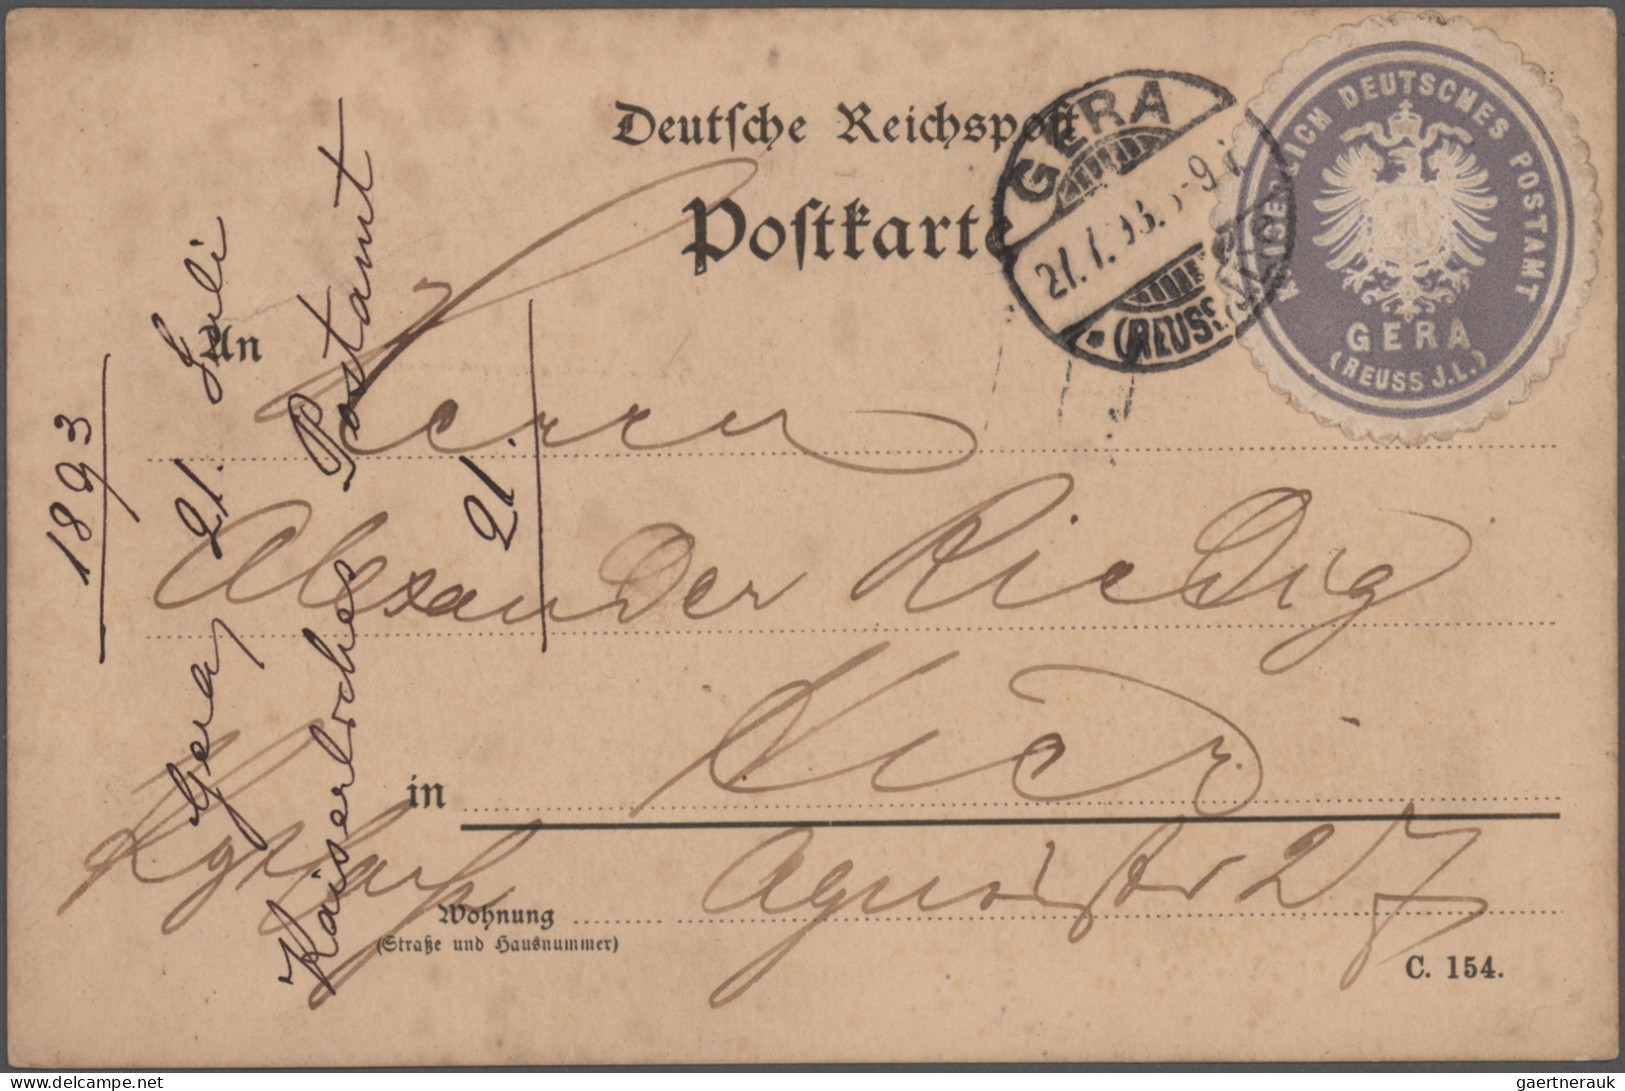 Deutsche Reichspost
Postkarte
GERA
21.7.93. 8-9
(REUSS J.L.)
KAISERLICH DEUTSCHES POSTAMT
GERA
(REUSS J.L.)
An
Herrn
Alexander Riedig
in
Hier
Agnesstr 27
Wohnung
(Straße und Hausnummer)
C. 154.
1893
Gera, 21. Juli
Kaiserliches Postamt
21.
www.delcampe.net
gaertnerauk